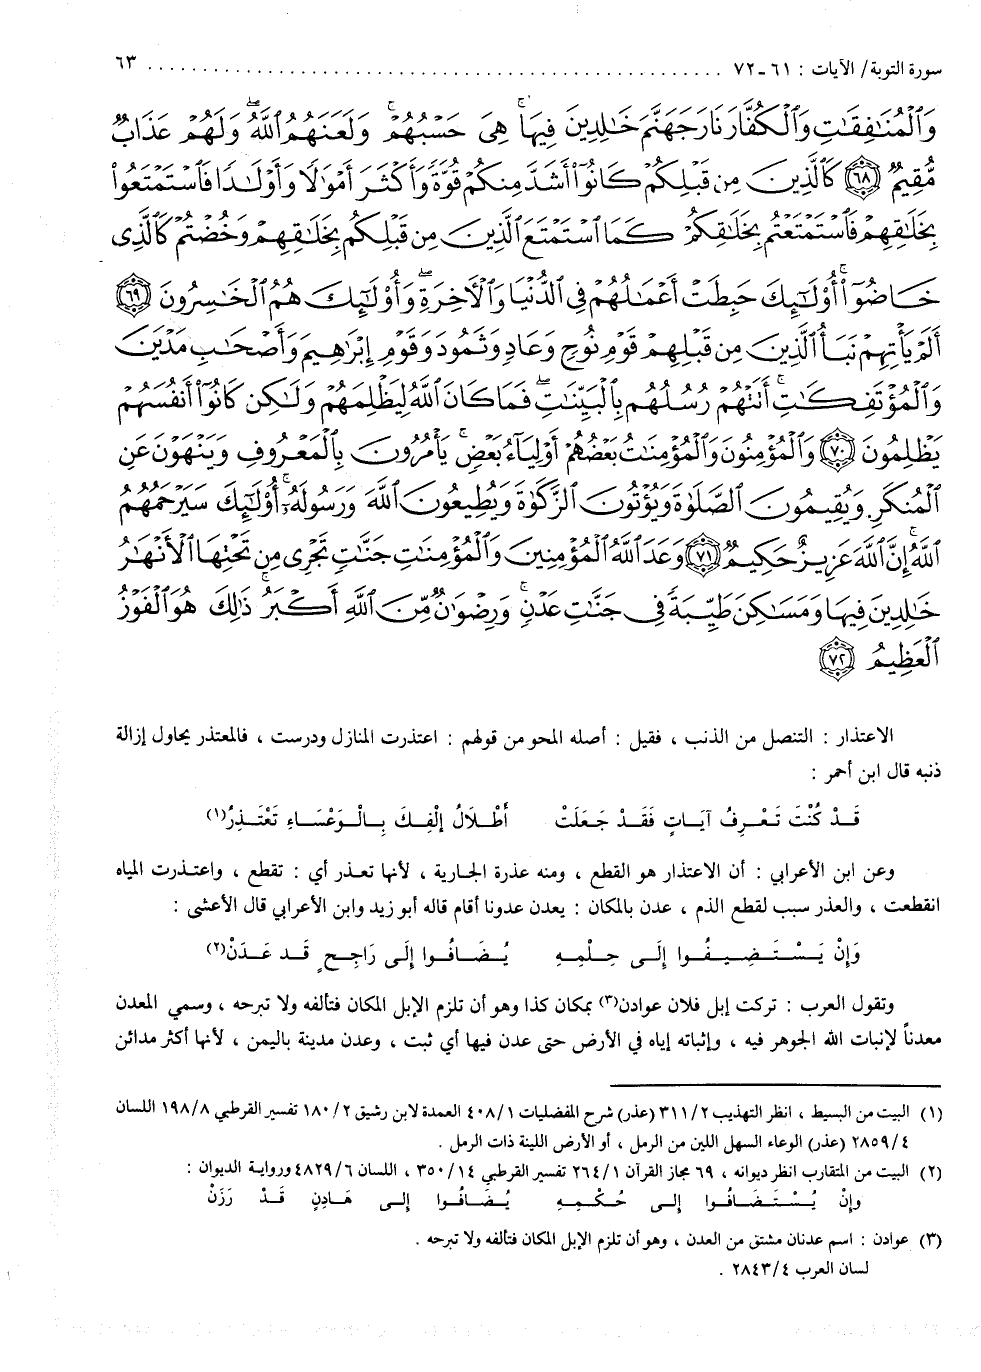 سورة التوبة/ الآيات : ٦١-٧٢ ........................................................ ٦٣
وَٱلْمُنَٰفِقَٰتِ وَٱلْكُفَّارَ نَارَ جَهَنَّمَ خَٰلِدِينَ فِيهَا ۚ هِىَ حَسْبُهُمْ ۚ وَلَعَنَهُمُ ٱللَّهُ ۖ وَلَهُمْ عَذَابٌ
مُّقِيمٌ ﴿٦٨﴾ كَٱلَّذِينَ مِن قَبْلِكُمْ كَانُوٓا۟ أَشَدَّ مِنكُمْ قُوَّةً وَأَكْثَرَ أَمْوَٰلًا وَأَوْلَٰدًا فَٱسْتَمْتَعُوا۟
بِخَلَٰقِهِمْ فَٱسْتَمْتَعْتُم بِخَلَٰقِكُمْ كَمَا ٱسْتَمْتَعَ ٱلَّذِينَ مِن قَبْلِكُم بِخَلَٰقِهِمْ وَخُضْتُمْ كَٱلَّذِى
خَاضُوٓا۟ ۚ أُو۟لَٰٓئِكَ حَبِطَتْ أَعْمَٰلُهُمْ فِى ٱلدُّنْيَا وَٱلْءَاخِرَةِ ۖ وَأُو۟لَٰٓئِكَ هُمُ ٱلْخَٰسِرُونَ ﴿٦٩﴾
أَلَمْ يَأْتِهِمْ نَبَأُ ٱلَّذِينَ مِن قَبْلِهِمْ قَوْمِ نُوحٍ وَعَادٍ وَثَمُودَ وَقَوْمِ إِبْرَٰهِيمَ وَأَصْحَٰبِ مَدْيَنَ
وَٱلْمُؤْتَفِكَٰتِ ۚ أَتَتْهُمْ رُسُلُهُم بِٱلْبَيِّنَٰتِ ۖ فَمَا كَانَ ٱللَّهُ لِيَظْلِمَهُمْ وَلَٰكِن كَانُوٓا۟ أَنفُسَهُمْ
يَظْلِمُونَ ﴿٧٠﴾ وَٱلْمُؤْمِنُونَ وَٱلْمُؤْمِنَٰتُ بَعْضُهُمْ أَوْلِيَآءُ بَعْضٍ ۚ يَأْمُرُونَ بِٱلْمَعْرُوفِ وَيَنْهَوْنَ عَنِ
ٱلْمُنكَرِ وَيُقِيمُونَ ٱلصَّلَوٰةَ وَيُؤْتُونَ ٱلزَّكَوٰةَ وَيُطِيعُونَ ٱللَّهَ وَرَسُولَهُۥٓ ۚ أُو۟لَٰٓئِكَ سَيَرْحَمُهُمُ
ٱللَّهُ ۗ إِنَّ ٱللَّهَ عَزِيزٌ حَكِيمٌ ﴿٧١﴾ وَعَدَ ٱللَّهُ ٱلْمُؤْمِنِينَ وَٱلْمُؤْمِنَٰتِ جَنَّٰتٍ تَجْرِى مِن تَحْتِهَا ٱلْأَنْهَٰرُ
خَٰلِدِينَ فِيهَا وَمَسَٰكِنَ طَيِّبَةً فِى جَنَّٰتِ عَدْنٍ ۚ وَرِضْوَٰنٌ مِّنَ ٱللَّهِ أَكْبَرُ ۚ ذَٰلِكَ هُوَ ٱلْفَوْزُ
ٱلْعَظِيمُ ﴿٧٢﴾
الاعتذار : التنصل من الذنب ، فقيل : أصله المحو من قولهم : اعتذرت المنازل ودرست ، فالمعتذر يحاول إزالة
ذنبه قال ابن أحمر :
قَدْ كُنْتَ تَعْرِفُ آيَاتٍ فَقَدْ جَعَلَتْ أَطْلَالُ إِلْفِكَ بِالْوَعْسَاءِ تَعْتَذِرُ(١)
وعن ابن الأعرابي : أن الاعتذار هو القطع ، ومنه عذرة الجارية ، لأنها تعذر أي : تقطع ، واعتذرت المياه
انقطعت ، والعذر سبب لقطع الذم ، عدن بالمكان : يعدن عدونا أقام قاله أبو زيد وابن الأعرابي قال الأعشى :
وَإِنْ يَسْتَضِيفُوا إِلَى حِلْمِهِ يُضَافُوا إِلَى رَاجِحٍ قَد عَدَنْ(٢)
وتقول العرب : تركت إبل فلان عوادن(٣) بمكان كذا وهو أن تلزم الإبل المكان فتألفه ولا تبرحه ، وسمي المعدن
معدناً لإنبات الله الجوهر فيه ، وإثباته إياه في الأرض حتى عدن فيها أي ثبت ، وعدن مدينة باليمن ، لأنها أكثر مدائن
(١) البيت من البسيط ، انظر التهذيب ٣١١/٢ (عذر) شرح المفضليات ٤٠٨/١ العمدة لابن رشيق ١٨٠/٢ تفسير القرطبي ١٩٨/٨ اللسان
٢٨٥٩/٤ (عذر) الوعاء السهل اللين من الرمل ، أو الأرض اللينة ذات الرمل .
(٢) البيت من المتقارب انظر ديوانه ، ٦٩ مجاز القرآن ٢٦٤/١ تفسير القرطبي ٣٥٠/١٤ ، اللسان ٤٨٢٩/٦ ورواية الديوان :
وإنْ يُسْتَضَافُوا إلى حُكْمِهِ يُضَافُوا إلى هَادِنٍ قَدْ رَزَنْ
(٣) عوادن : اسم عدنان مشتق من العدن ، وهو أن تلزم الإبل المكان فتألفه ولا تبرحه .
لسان العرب ٢٨٤٣/٤ .